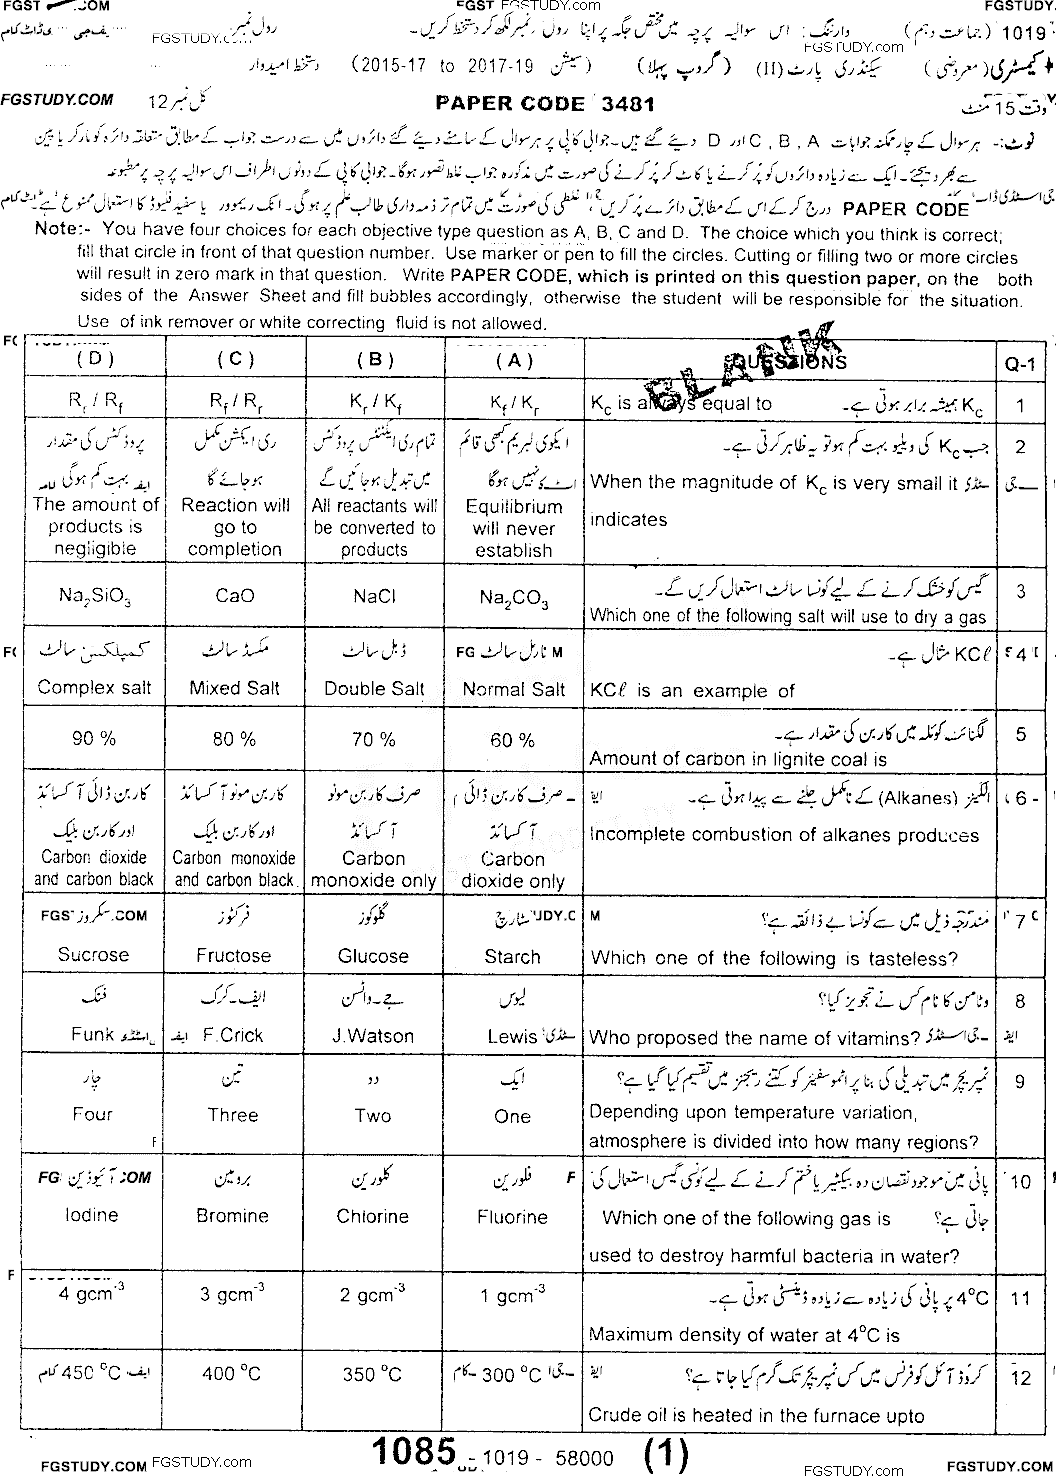 FGSTUDY.COM FGSTUDY.com FGSTUDY.COM
1019 (جماعت دہم) وارننگ: اس سوالیہ پرچہ میں مختص جگہ پر اپنا رول نمبر لکھ کر دستخط کریں۔ رول نمبر:
FGSTUDY.com
کیمسٹری (معروضی) سیکنڈری پارٹ (II) (گروپ پہلا) (سیشن 2015-17 to 2017-19) دستخط امیدوار
وقت 15 منٹ PAPER CODE 3481 کل نمبر 12 FGSTUDY.COM
نوٹ:- ہر سوال کے چار ممکنہ جوابات A ، B ، C اور D دیئے گئے ہیں۔ جوابی کاپی پر ہر سوال کے سامنے دیئے گئے دائروں میں سے درست جواب کے مطابق متعلقہ دائرہ کو مارکر یا پین
سے بھر دیجئے۔ ایک سے زیادہ دائروں کو پُر کرنے یا کاٹ کر پُر کرنے کی صورت میں مذکورہ جواب غلط تصور ہوگا۔ جوابی کاپی کے دونوں اطراف اس سوالیہ پرچہ پر مطبوعہ
PAPER CODE درج کر کے اس کے مطابق دائرے پُر کریں، غلطی کی صورت میں تمام تر ذمہ داری طالب علم پر ہوگی۔ انک ریموور یا سفید فلیوڈ کا استعمال ممنوع ہے۔
Note:- You have four choices for each objective type question as A, B, C and D. The choice which you think is correct;
fill that circle in front of that question number. Use marker or pen to fill the circles. Cutting or filling two or more circles
will result in zero mark in that question. Write PAPER CODE, which is printed on this question paper, on the both
sides of the Answer Sheet and fill bubbles accordingly, otherwise the student will be responsible for the situation.
Use of ink remover or white correcting fluid is not allowed.
BLANK
(D) (C) (B) (A) QUESTIONS Q-1
Rr / Rf Rf / Rr Kr / Kf Kf / Kr Kc is always equal to Kc ہمیشہ برابر ہوتی ہے۔ 1
پروڈکٹس کی مقدار ری ایکشن مکمل تمام ری ایکٹنٹس پروڈکٹس ایکوی لبریم کبھی قائم جب Kc کی ویلیو بہت کم ہو تو یہ ظاہر کرتی ہے۔ 2
بہت کم ہوگی ہو جائے گا میں تبدیل ہو جائیں گے نہیں ہوگا When the magnitude of Kc is very small it
The amount of Reaction will All reactants will Equilibrium indicates
products is go to be converted to will never
negligible completion products establish
Na2SiO3 CaO NaCl Na2CO3 گیس کو خشک کرنے کے لیے کونسا سالٹ استعمال کریں گے۔ 3
Which one of the following salt will use to dry a gas
کمپلیکس سالٹ مکسڈ سالٹ ڈبل سالٹ نارمل سالٹ KCℓ مثال ہے۔ 4
Complex salt Mixed Salt Double Salt Normal Salt KCℓ is an example of
90 % 80 % 70 % 60 % لگنائٹ کوئلہ میں کاربن کی مقدار ہے۔ 5
Amount of carbon in lignite coal is
کاربن ڈائی آکسائڈ کاربن مونو آکسائڈ صرف کاربن مونو صرف کاربن ڈائی الکینز (Alkanes) کے نامکمل جلنے سے پیدا ہوتی ہے۔ 6
اور کاربن بلیک اور کاربن بلیک آکسائڈ آکسائڈ Incomplete combustion of alkanes produces
Carbon dioxide Carbon monoxide Carbon Carbon
and carbon black and carbon black. monoxide only dioxide only
سکروز فرکٹوز گلوکوز سٹارچ مندرجہ ذیل میں سے کونسا بے ذائقہ ہے؟ 7
Sucrose Fructose Glucose Starch Which one of the following is tasteless?
فنک ایف۔کرک جے۔واٹسن لیوس وٹامن کا نام کس نے تجویز کیا؟ 8
Funk F.Crick J.Watson Lewis Who proposed the name of vitamins?
چار تین دو ایک ٹمپریچر میں تبدیلی کی بنا پر اٹموسفیئر کو کتنے ریجنز میں تقسیم کیا گیا ہے؟ 9
Four Three Two One Depending upon temperature variation,
atmosphere is divided into how many regions?
آئیوڈین برومین کلورین فلورین پانی میں موجود نقصان دہ بیکٹیریا ختم کرنے کے لیے کونسی گیس استعمال کی 10
Iodine Bromine Chlorine Fluorine Which one of the following gas is جاتی ہے؟
used to destroy harmful bacteria in water?
4 gcm-3 3 gcm-3 2 gcm-3 1 gcm-3 4°C پر پانی کی زیادہ سے زیادہ ڈینسٹی ہوتی ہے۔ 11
Maximum density of water at 4°C is
450 °C 400 °C 350 °C 300 °C کروڈ آئل کو فرنس میں کس ٹمپریچر تک گرم کیا جاتا ہے؟ 12
Crude oil is heated in the furnace upto
1085 - 1019 - 58000 (1)
FGSTUDY.COM FGSTUDY.com FGSTUDY.com FGSTUDY.COM